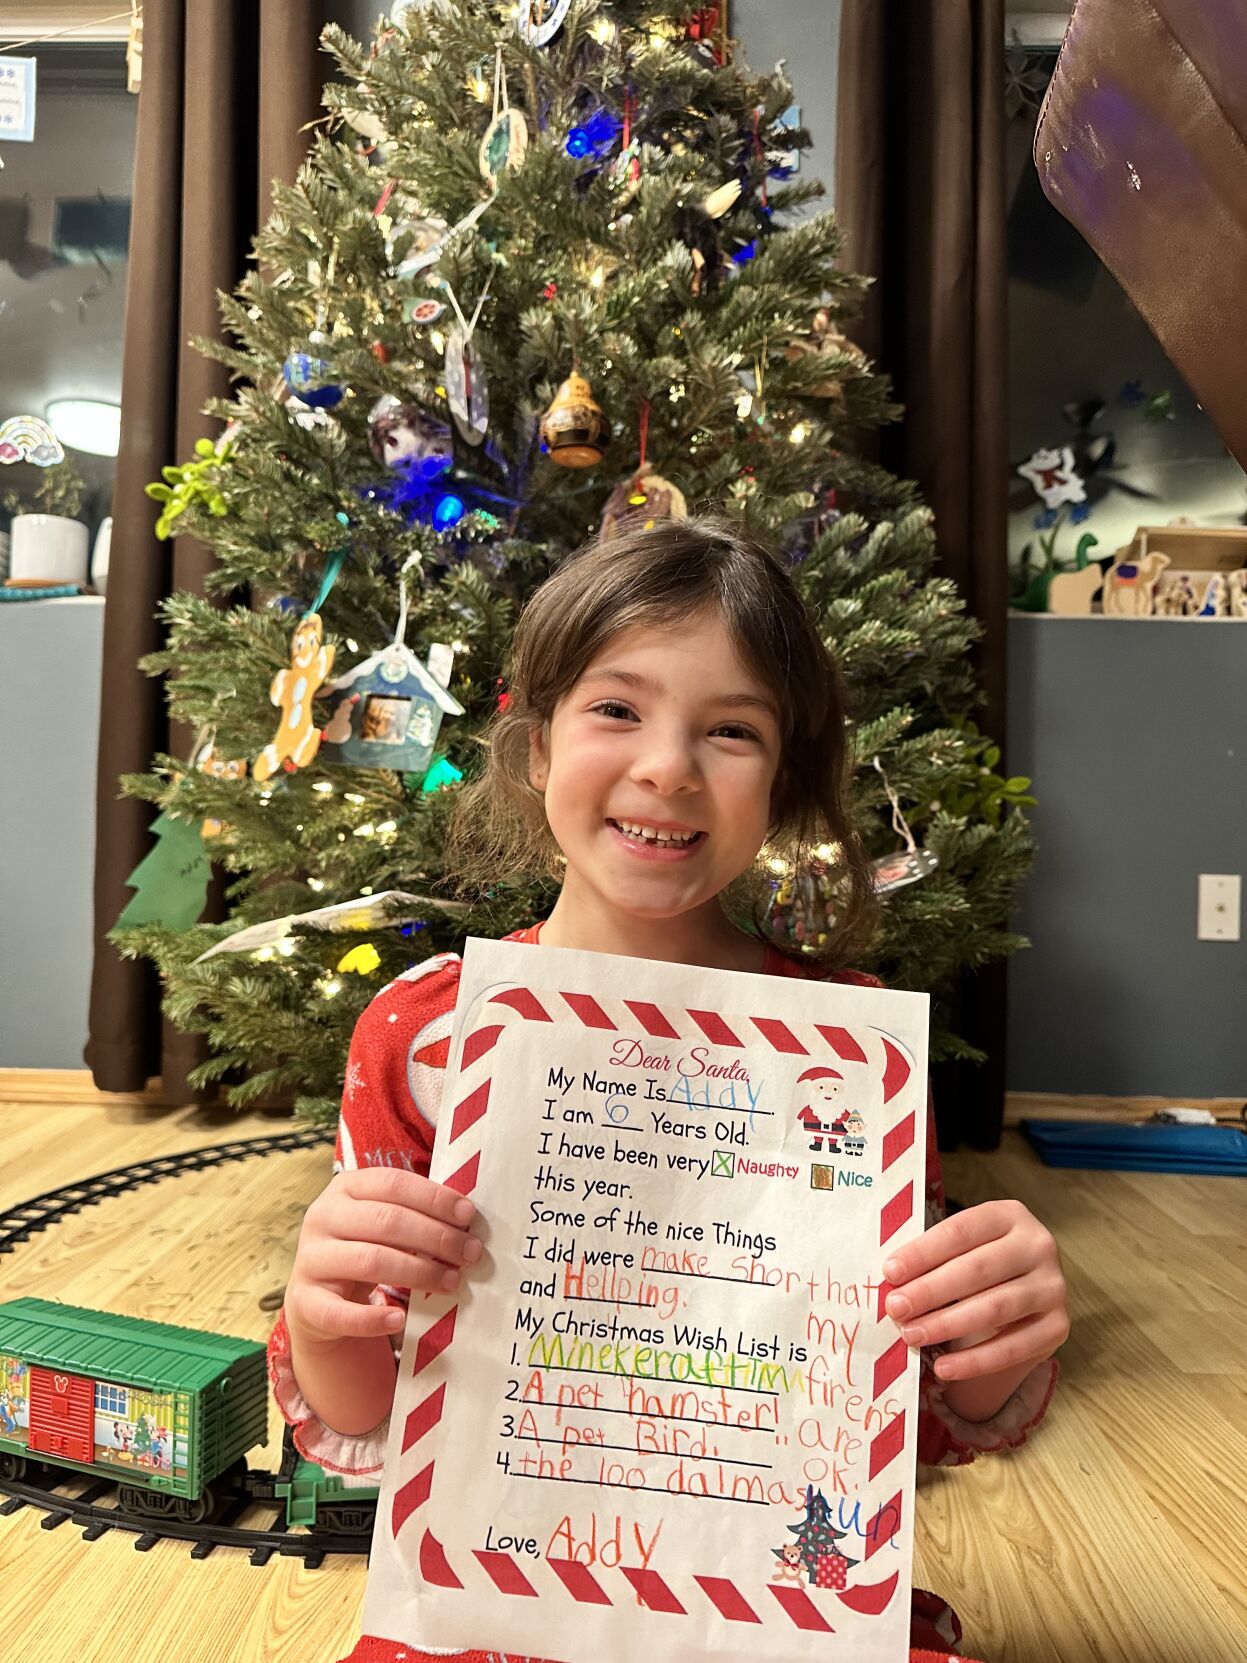 Dear Santa,
My Name Is Addy.
I am 6 Years Old.
I have been very X Naughty Nice
this year.
Some of the nice Things
I did were make shor that
my
firens
are
OK.
and Hellping.
My Christmas Wish List is
1. Minekcraft TM
2. A pet hamster!
3. A pet Bird.
4. the 100 dalmashun
Love, Addy